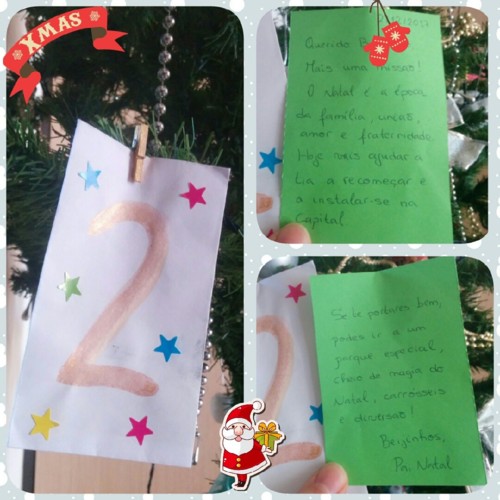 XMAS
2
Querido
Mais uma missão!
O Natal é a época
da família, união,
amor e fraternidade.
Hoje vais ajudar a
Lia a recomeçar e
a instalar-se na
Capital.
Se te portares bem,
podes ir a um
parque especial,
cheio de magia do
Natal, carrosséis
e diversão!
Beijinhos,
Pai Natal